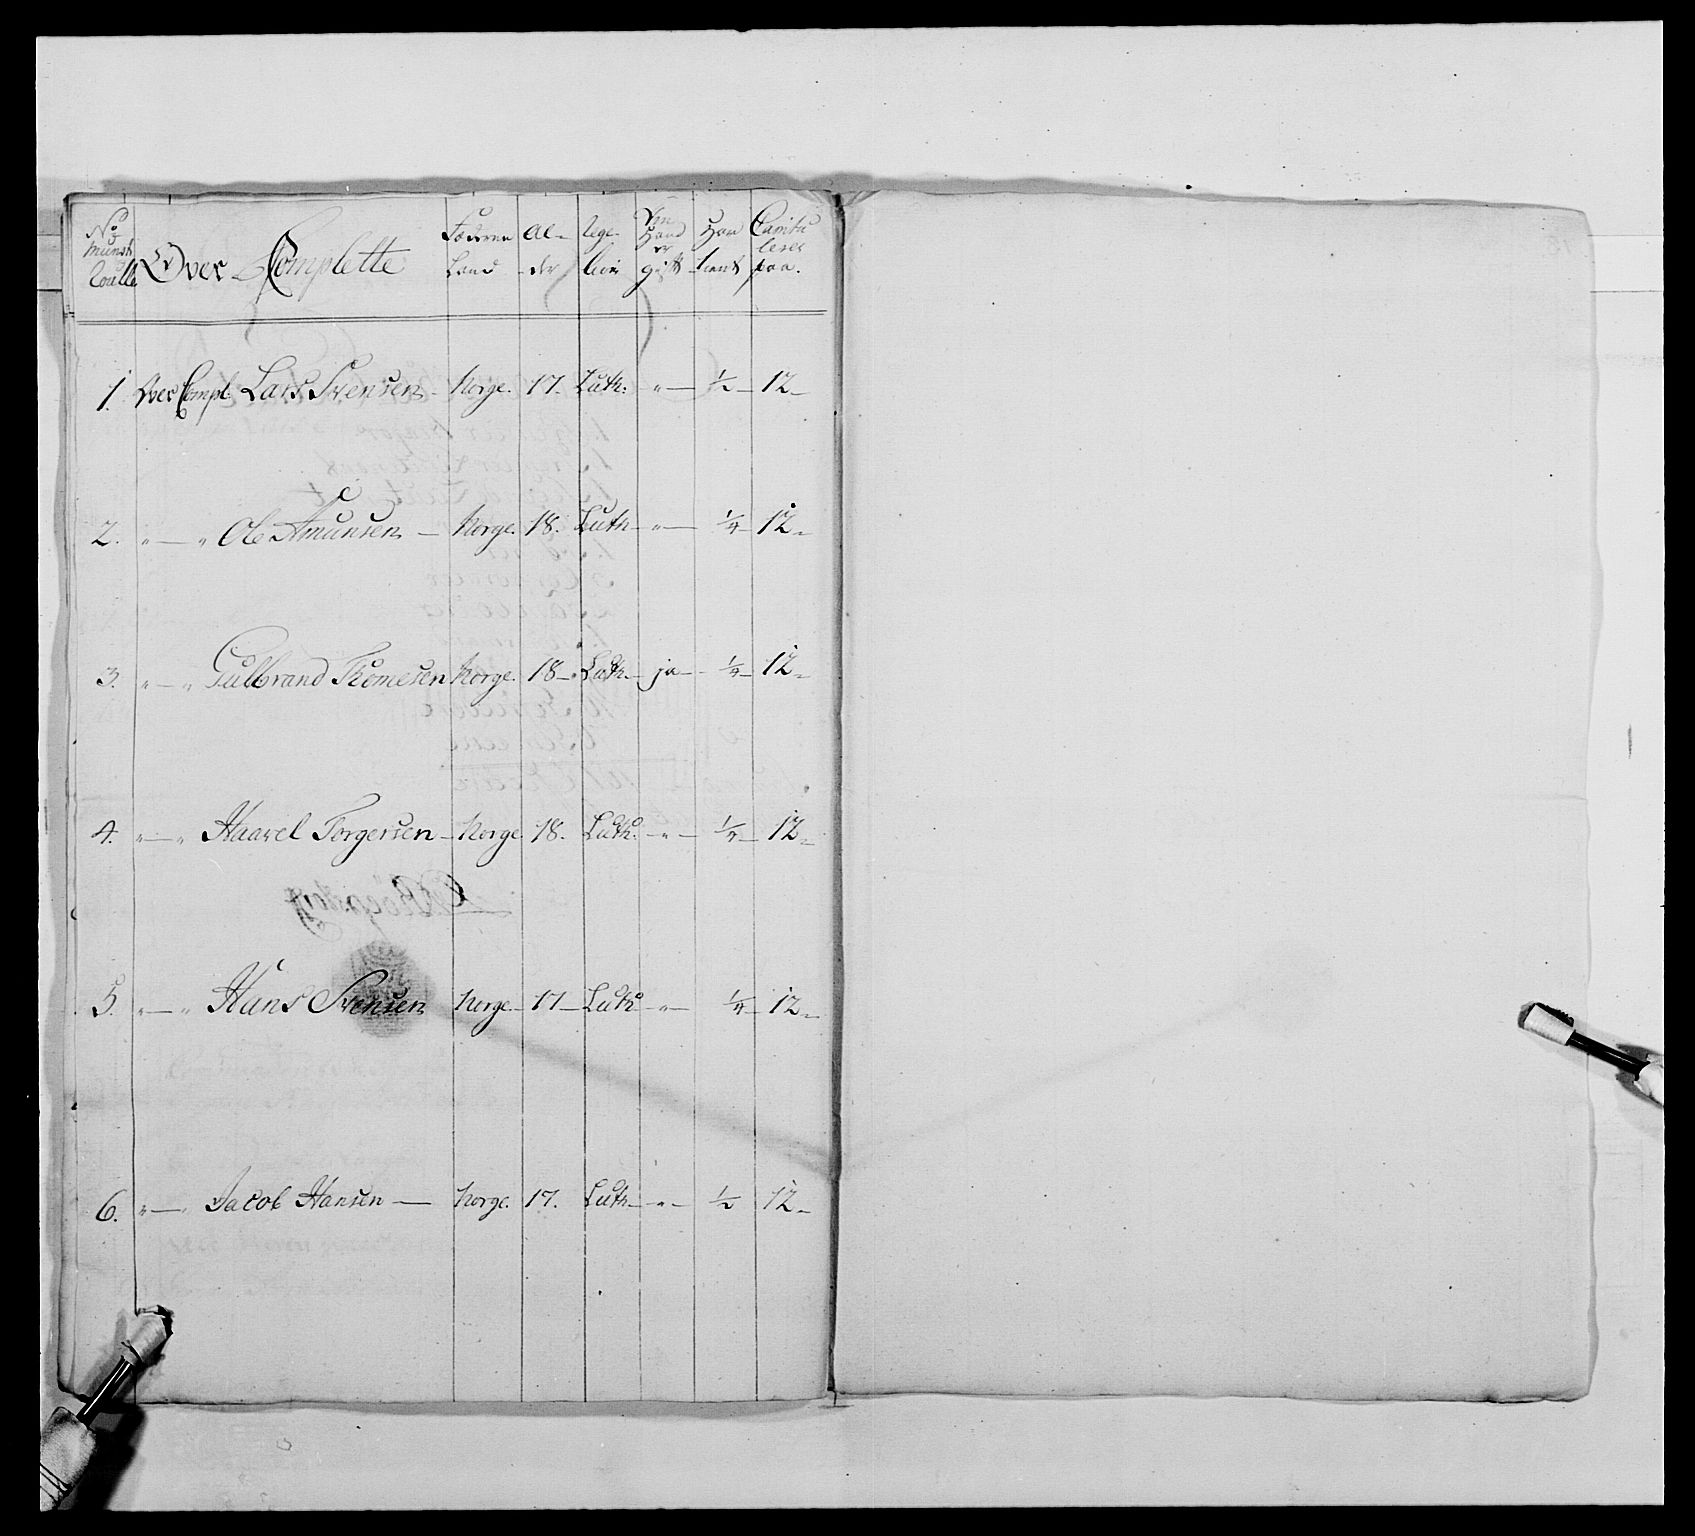 No Munst Roulle | Over Complette | Fæderne Land | Al- der | Rege- lion | Om Hand er gift | Har tient | Capitu leret paa.
1. Over Compl. Lars Svensen Norge. 17. Luth. " — ½ — 12 —
2. " — " Ole Amunsen — Norge. 18. Luth — " — ¼ — 12 —
3. " — " Gulbrand Thomesen Norge. 18 — Luth. — ja — ¼ — 12 —
4. " — " Haavel Torgersen — Norge 18. Luth. — " — ¼ — 12 —
5. " — " Hans Svensen Norge. — 17 — Luth. — " — ¼ — 12 —
6. " — " Jacob Hansen — Norge. 17. Luth — " — ½ 12 —